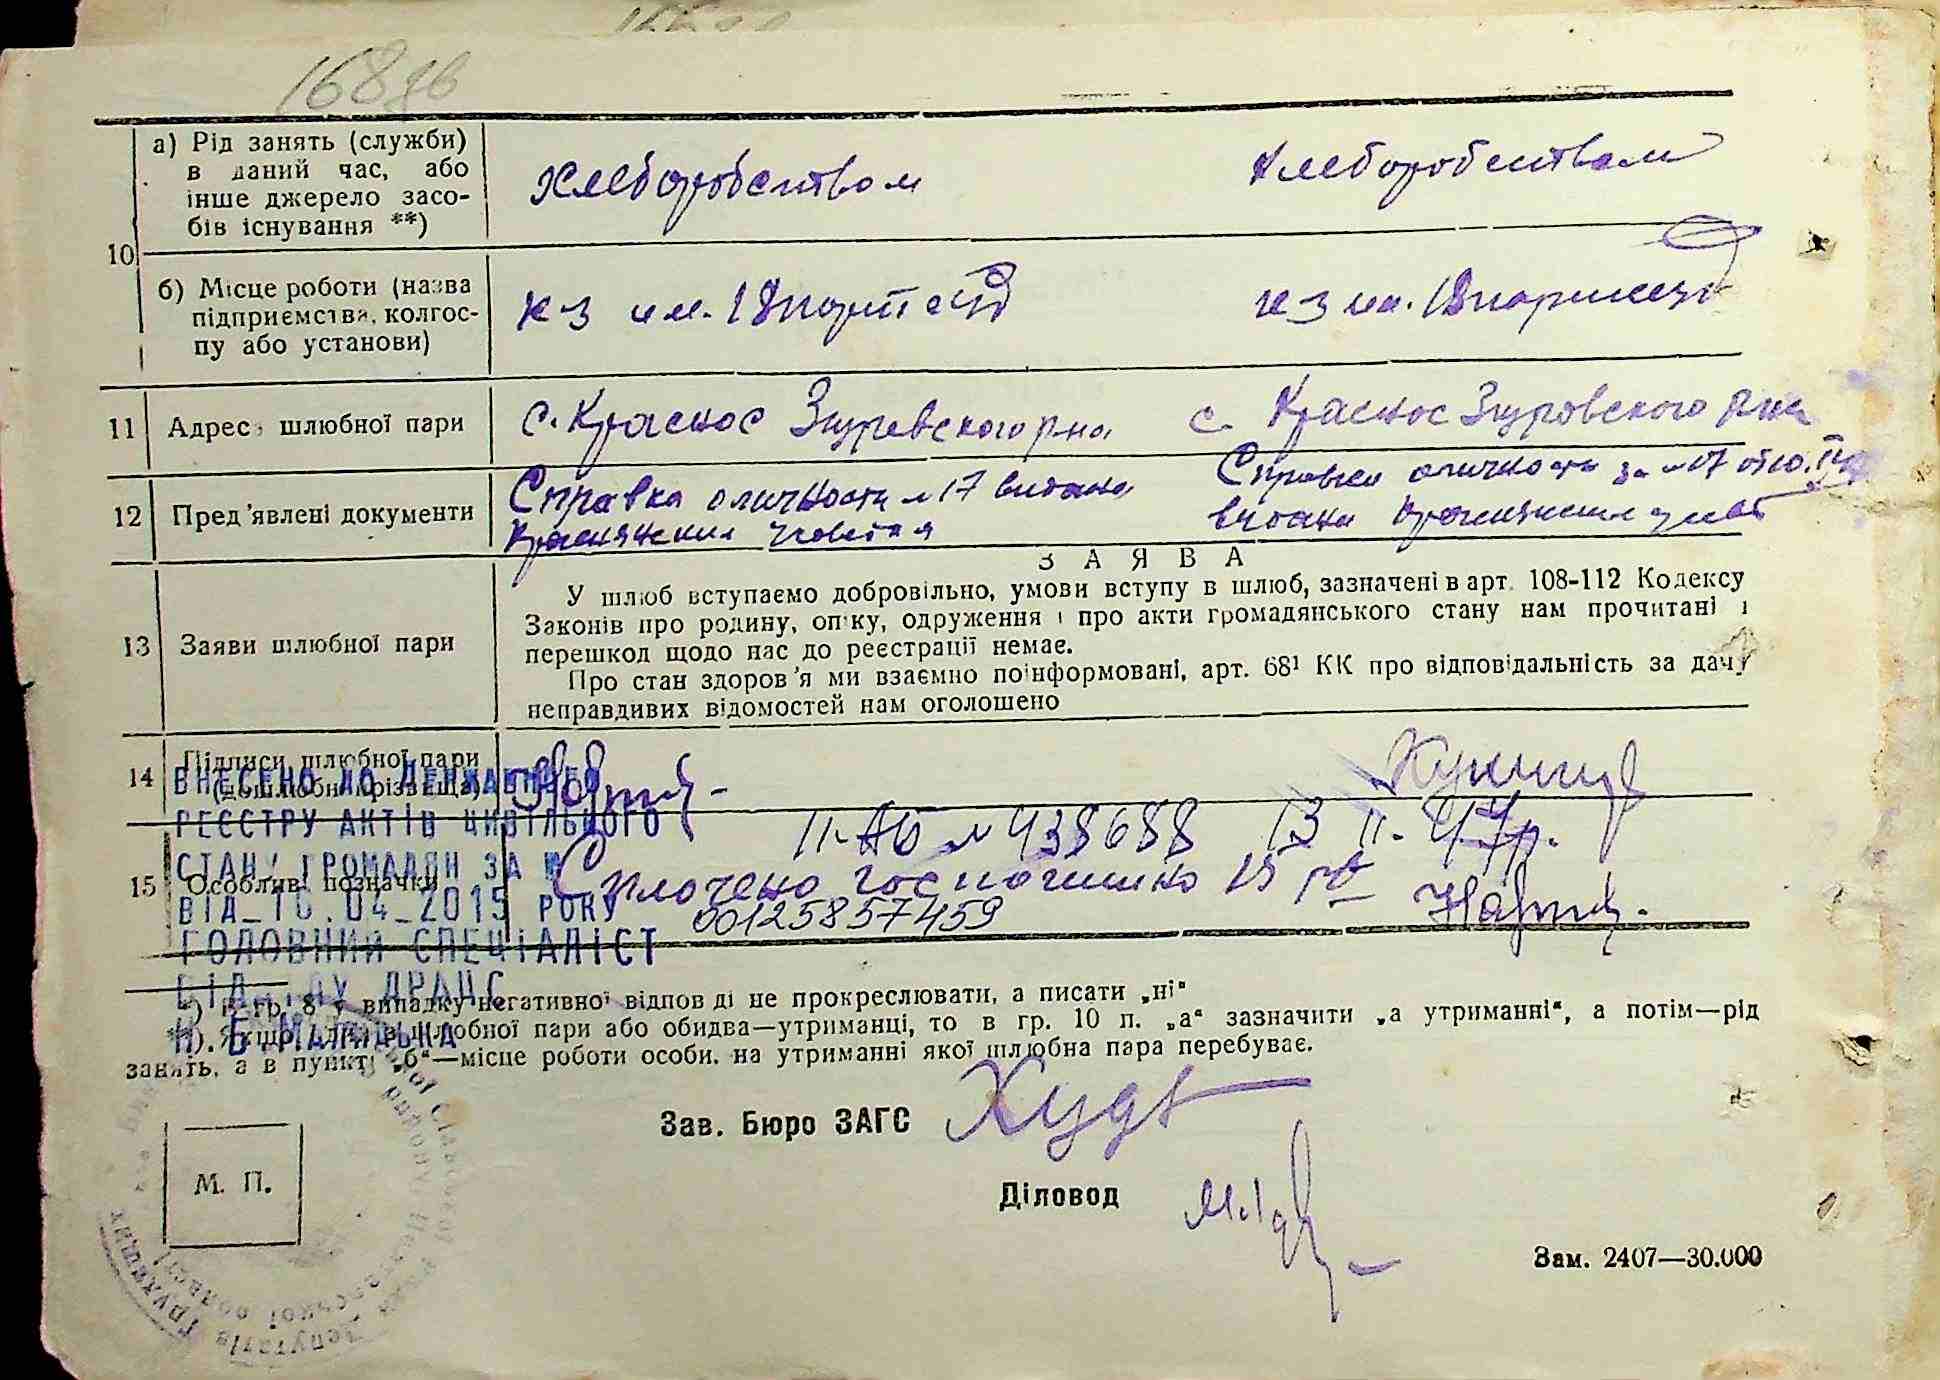 168 зв
10
а) Рід занять (служби)
в даний час, або
інше джерело засо-
бів існування **)
хлеборобством
хлеборобством
б) Місце роботи (назва
підприємства, колгос-
пу або установи)
к-з им. 18 партсезд
к-з им. 18 партсезд
11 Адреса шлюбної пари
с. Краснос Згуровского р-на
с. Краснос Згуровского р-на
12 Пред'явлені документи
Справка о личности № 17 видана
Справка о личности за № 17 от 10.
13 Заяви шлюбної пари
ЗАЯВА
У шлюб вступаємо добровільно, умови вступу в шлюб, зазначені в арт. 108-112 Кодексу
Законів про родину, опіку, одруження і про акти громадянського стану нам прочитані і
перешкод щодо нас до реєстрації немає.
Про стан здоров'я ми взаємно поінформовані, арт. 68¹ КК про відповідальність за дачу
неправдивих відомостей нам оголошено
14 Підписи шлюбної пари
(дошлюбні прізвища)
ВНЕСЕНО ДО ДЕРЖАВНОГО
РЕЄСТРУ АКТІВ ЦИВІЛЬНОГО
СТАНУ ГРОМАДЯН ЗА №
15 Особливі позначки
II-АБ № 438688 13 II. 47р.
Сплочено госпошлино 15 рб
ВІД 16.04-2015 РОКУ
00125857459
ГОЛОВНИЙ СПЕЦІАЛІСТ
ВІДДІЛУ ДРАЦС
Н. Б. МАЛИЦЬКА
*) В гр. 8 у випадку негативної відповіді не прокреслювати, а писати „ні“
**) Якщо один із шлюбної пари або обидва—утриманці, то в гр. 10 п. „а“ зазначити „а утриманні“, а потім—рід
занять, а в пункті „б“—місце роботи особи, на утриманні якої шлюбна пара перебуває.
Зав. Бюро ЗАГС
М. П.
Діловод
Зам. 2407—30.000